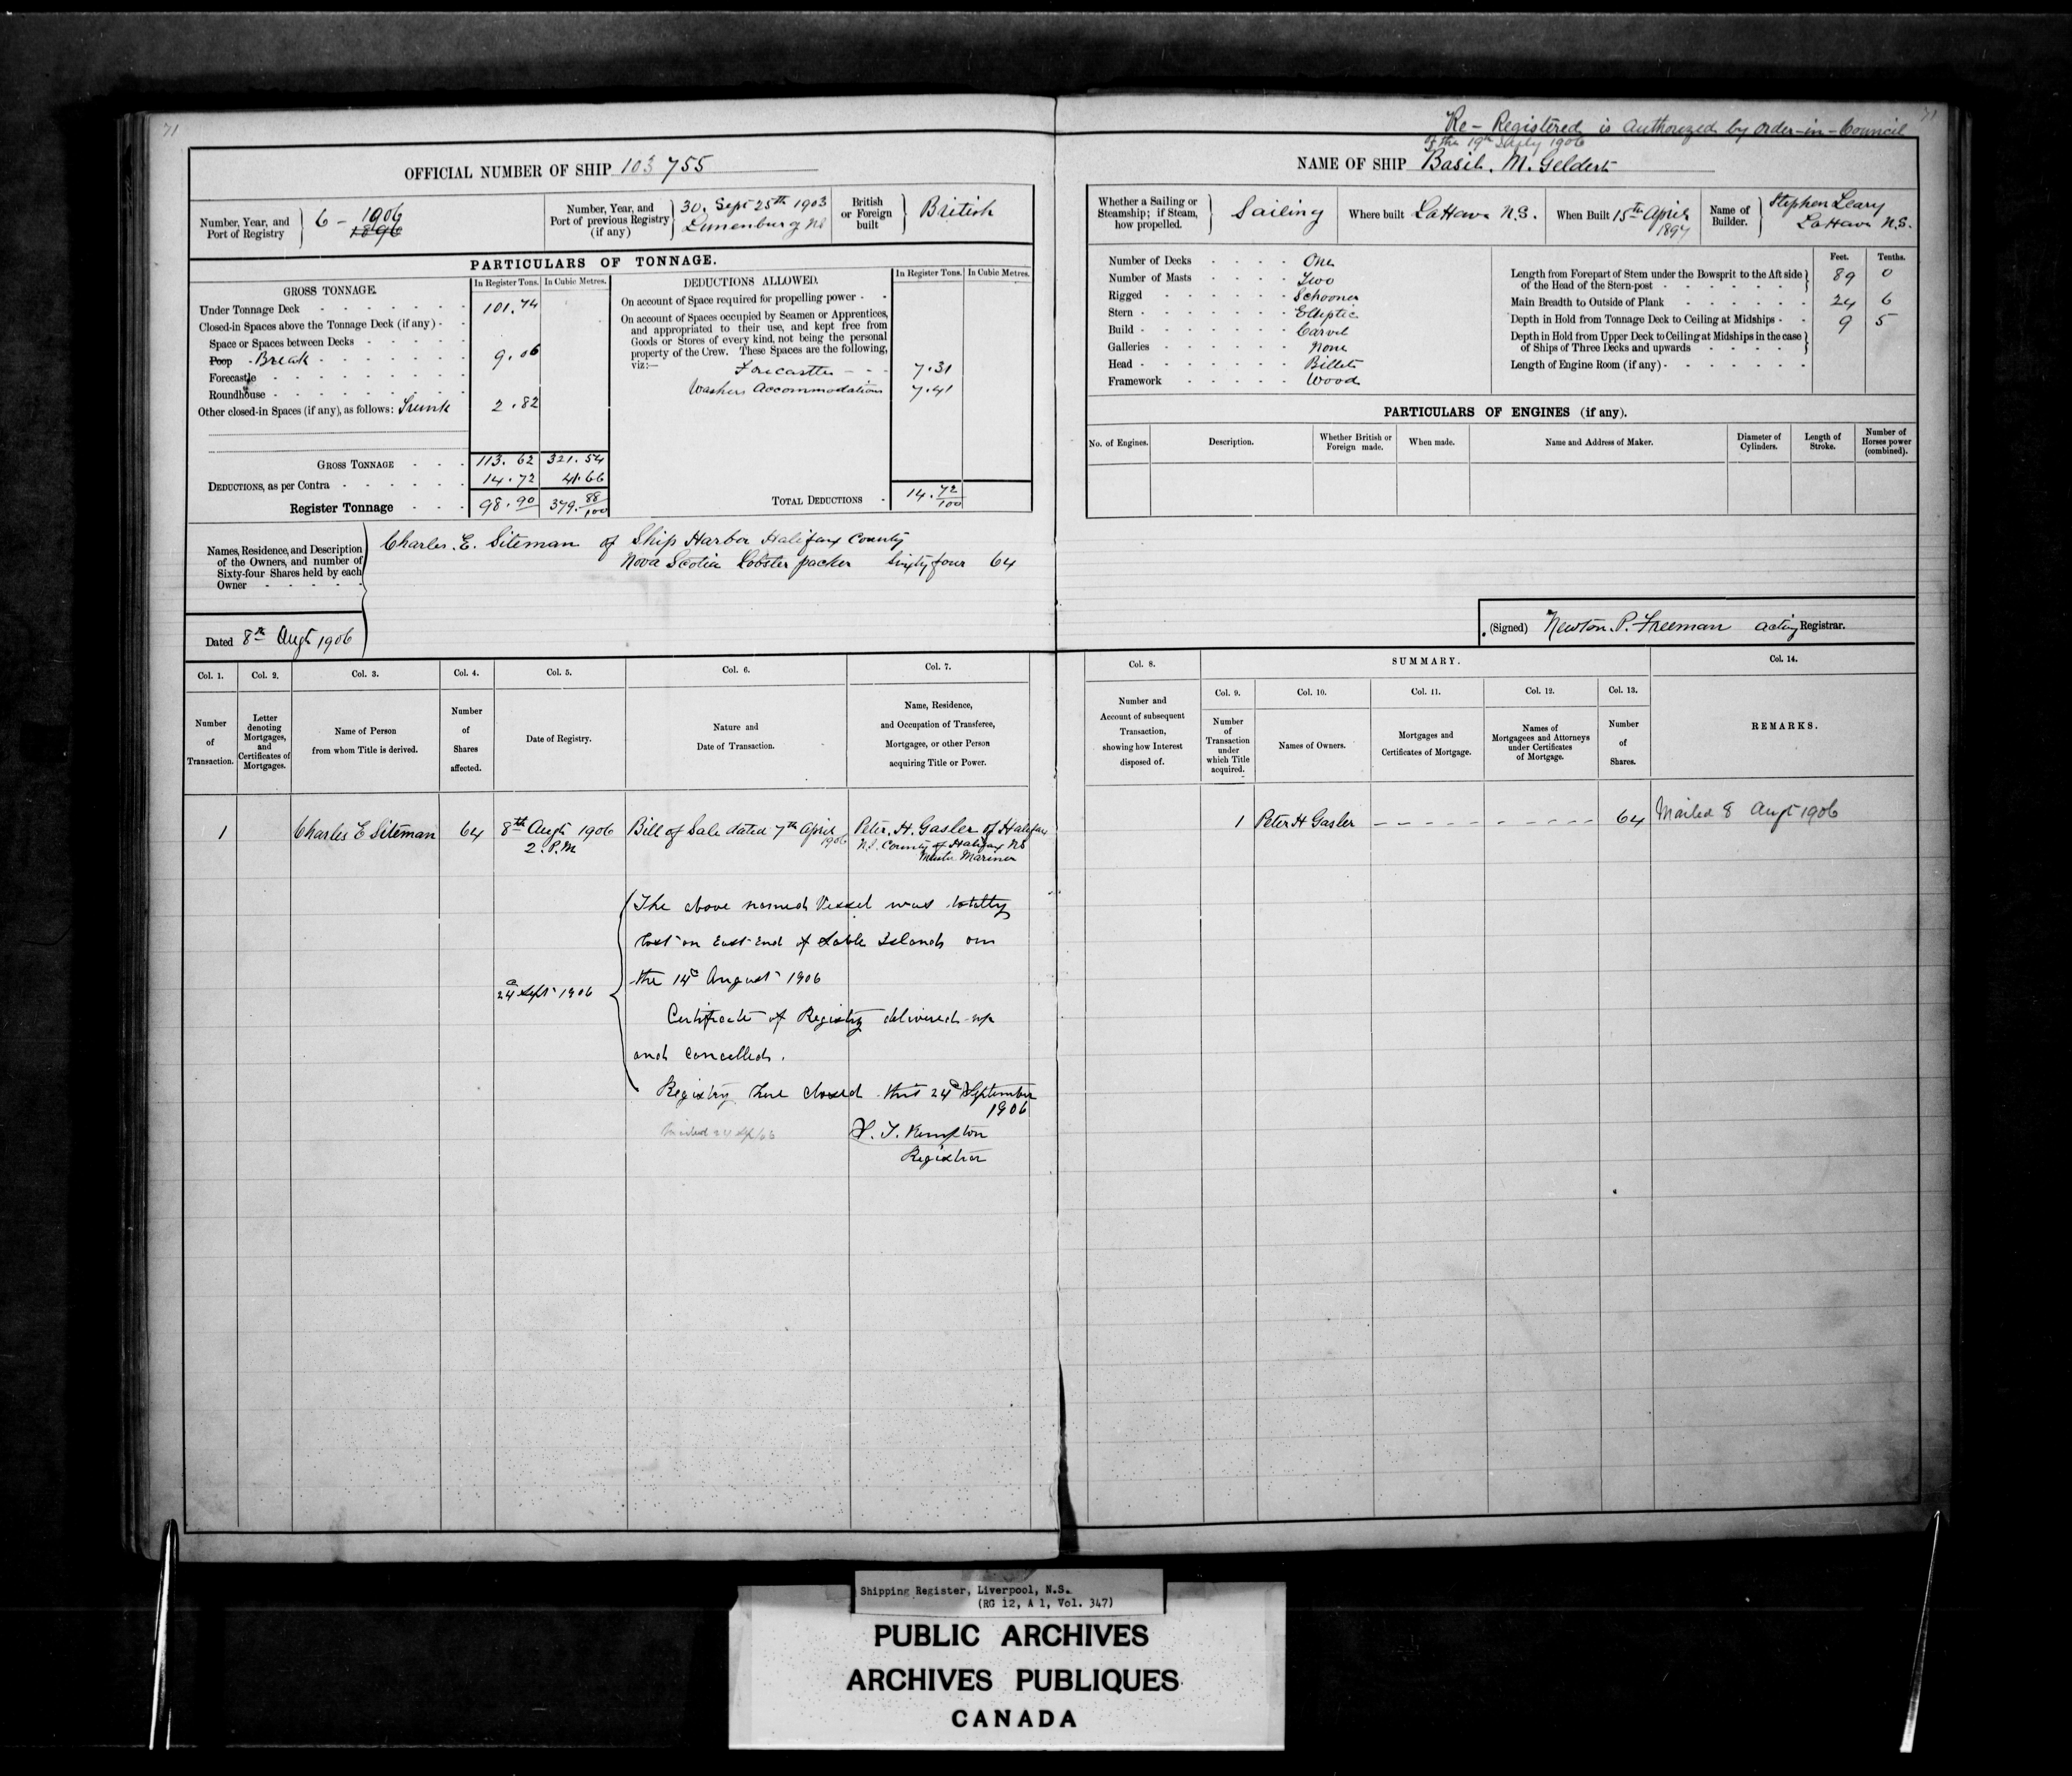 71
OFFICIAL NUMBER OF SHIP 103755
Number, Year, and Port of Registry 6 - 1906 1896
Number, Year, and Port of previous Registry (if any) 30. Sept 25th 1903 Lunenburg NS
British or Foreign built British
PARTICULARS OF TONNAGE.
GROSS TONNAGE. In Register Tons. In Cubic Metres.
Under Tonnage Deck 101.74
Closed-in Spaces above the Tonnage Deck (if any)
Space or Spaces between Decks
Poop Break 9.06
Forecastle
Roundhouse
Other closed-in Spaces (if any), as follows: Trunk 2.82
GROSS TONNAGE 113.62 321.54
DEDUCTIONS, as per Contra 14.72 41.66
Register Tonnage 98.90 379.88/100
DEDUCTIONS ALLOWED. In Register Tons. In Cubic Metres.
On account of Space required for propelling power
On account of Spaces occupied by Seamen or Apprentices,
and appropriated to their use, and kept free from
Goods or Stores of every kind, not being the personal
property of the Crew. These Spaces are the following,
viz:— Forecastle 7.31
Accommodations 7.41
TOTAL DEDUCTIONS 14.72/100
Names, Residence, and Description
of the Owners, and number of
Sixty-four Shares held by each
Owner
Charles. E. Siteman of Ship Harbor Halifax County
Nova Scotia Lobster packer Sixty four 64
Dated 8th Augt 1906
Col. 1. Col. 2. Col. 3. Col. 4. Col. 5. Col. 6. Col. 7.
Number of Transaction.
Letter denoting Mortgages, and Certificates of Mortgages.
Name of Person from whom Title is derived.
Number of Shares affected.
Date of Registry.
Nature and Date of Transaction.
Name, Residence, and Occupation of Transferee, Mortgagee, or other Person acquiring Title or Power.
1 Charles E Siteman 64 8th Augt 1906 2. P.M Bill of Sale dated 7th April 1906
Peter. H. Gasler of Halifax
N.S. County of Halifax NS
Master Mariner
24 Sept 1906
The above named Vessel was totally
lost on East End of Sable Island on
the 14 August 1906
Certificate of Registry delivered up
and cancelled.
Registry here closed this 24 September
1906
Registrar
71
Re-Registered is Authorized by Order-in-Council
of the 19th July 1906
NAME OF SHIP Basil. M. Geldert
Whether a Sailing or Steamship; if Steam, how propelled. Sailing
Where built LaHave N.S.
When Built 15th April 1897
Name of Builder. Stephen Leary LaHave N.S.
Number of Decks One
Number of Masts Two
Rigged Schooner
Stern Elliptic
Build Carvel
Galleries None
Head Billet
Framework Wood
Feet. Tenths.
Length from Forepart of Stem under the Bowsprit to the Aft side
of the Head of the Stern-post 89 0
Main Breadth to Outside of Plank 24 6
Depth in Hold from Tonnage Deck to Ceiling at Midships 9 5
Depth in Hold from Upper Deck to Ceiling at Midships in the case
of Ships of Three Decks and upwards
Length of Engine Room (if any)
PARTICULARS OF ENGINES (if any).
No. of Engines. Description. Whether British or Foreign made. When made. Name and Address of Maker. Diameter of Cylinders. Length of Stroke. Number of Horses power (combined).
(Signed) Newton. P. Freeman acting Registrar.
Col. 8. SUMMARY. Col. 14.
Col. 9. Col. 10. Col. 11. Col. 12. Col. 13.
Number and Account of subsequent Transaction, showing how Interest disposed of.
Number of Transaction under which Title acquired.
Names of Owners.
Mortgages and Certificates of Mortgage.
Names of Mortgagees and Attorneys under Certificates of Mortgage.
Number of Shares.
REMARKS.
1 Peter H Gasler 64 Mailed 8 Augt 1906
Shipping Register, Liverpool, N.S.
(RG 12, A 1, Vol. 347)
PUBLIC ARCHIVES
ARCHIVES PUBLIQUES
CANADA